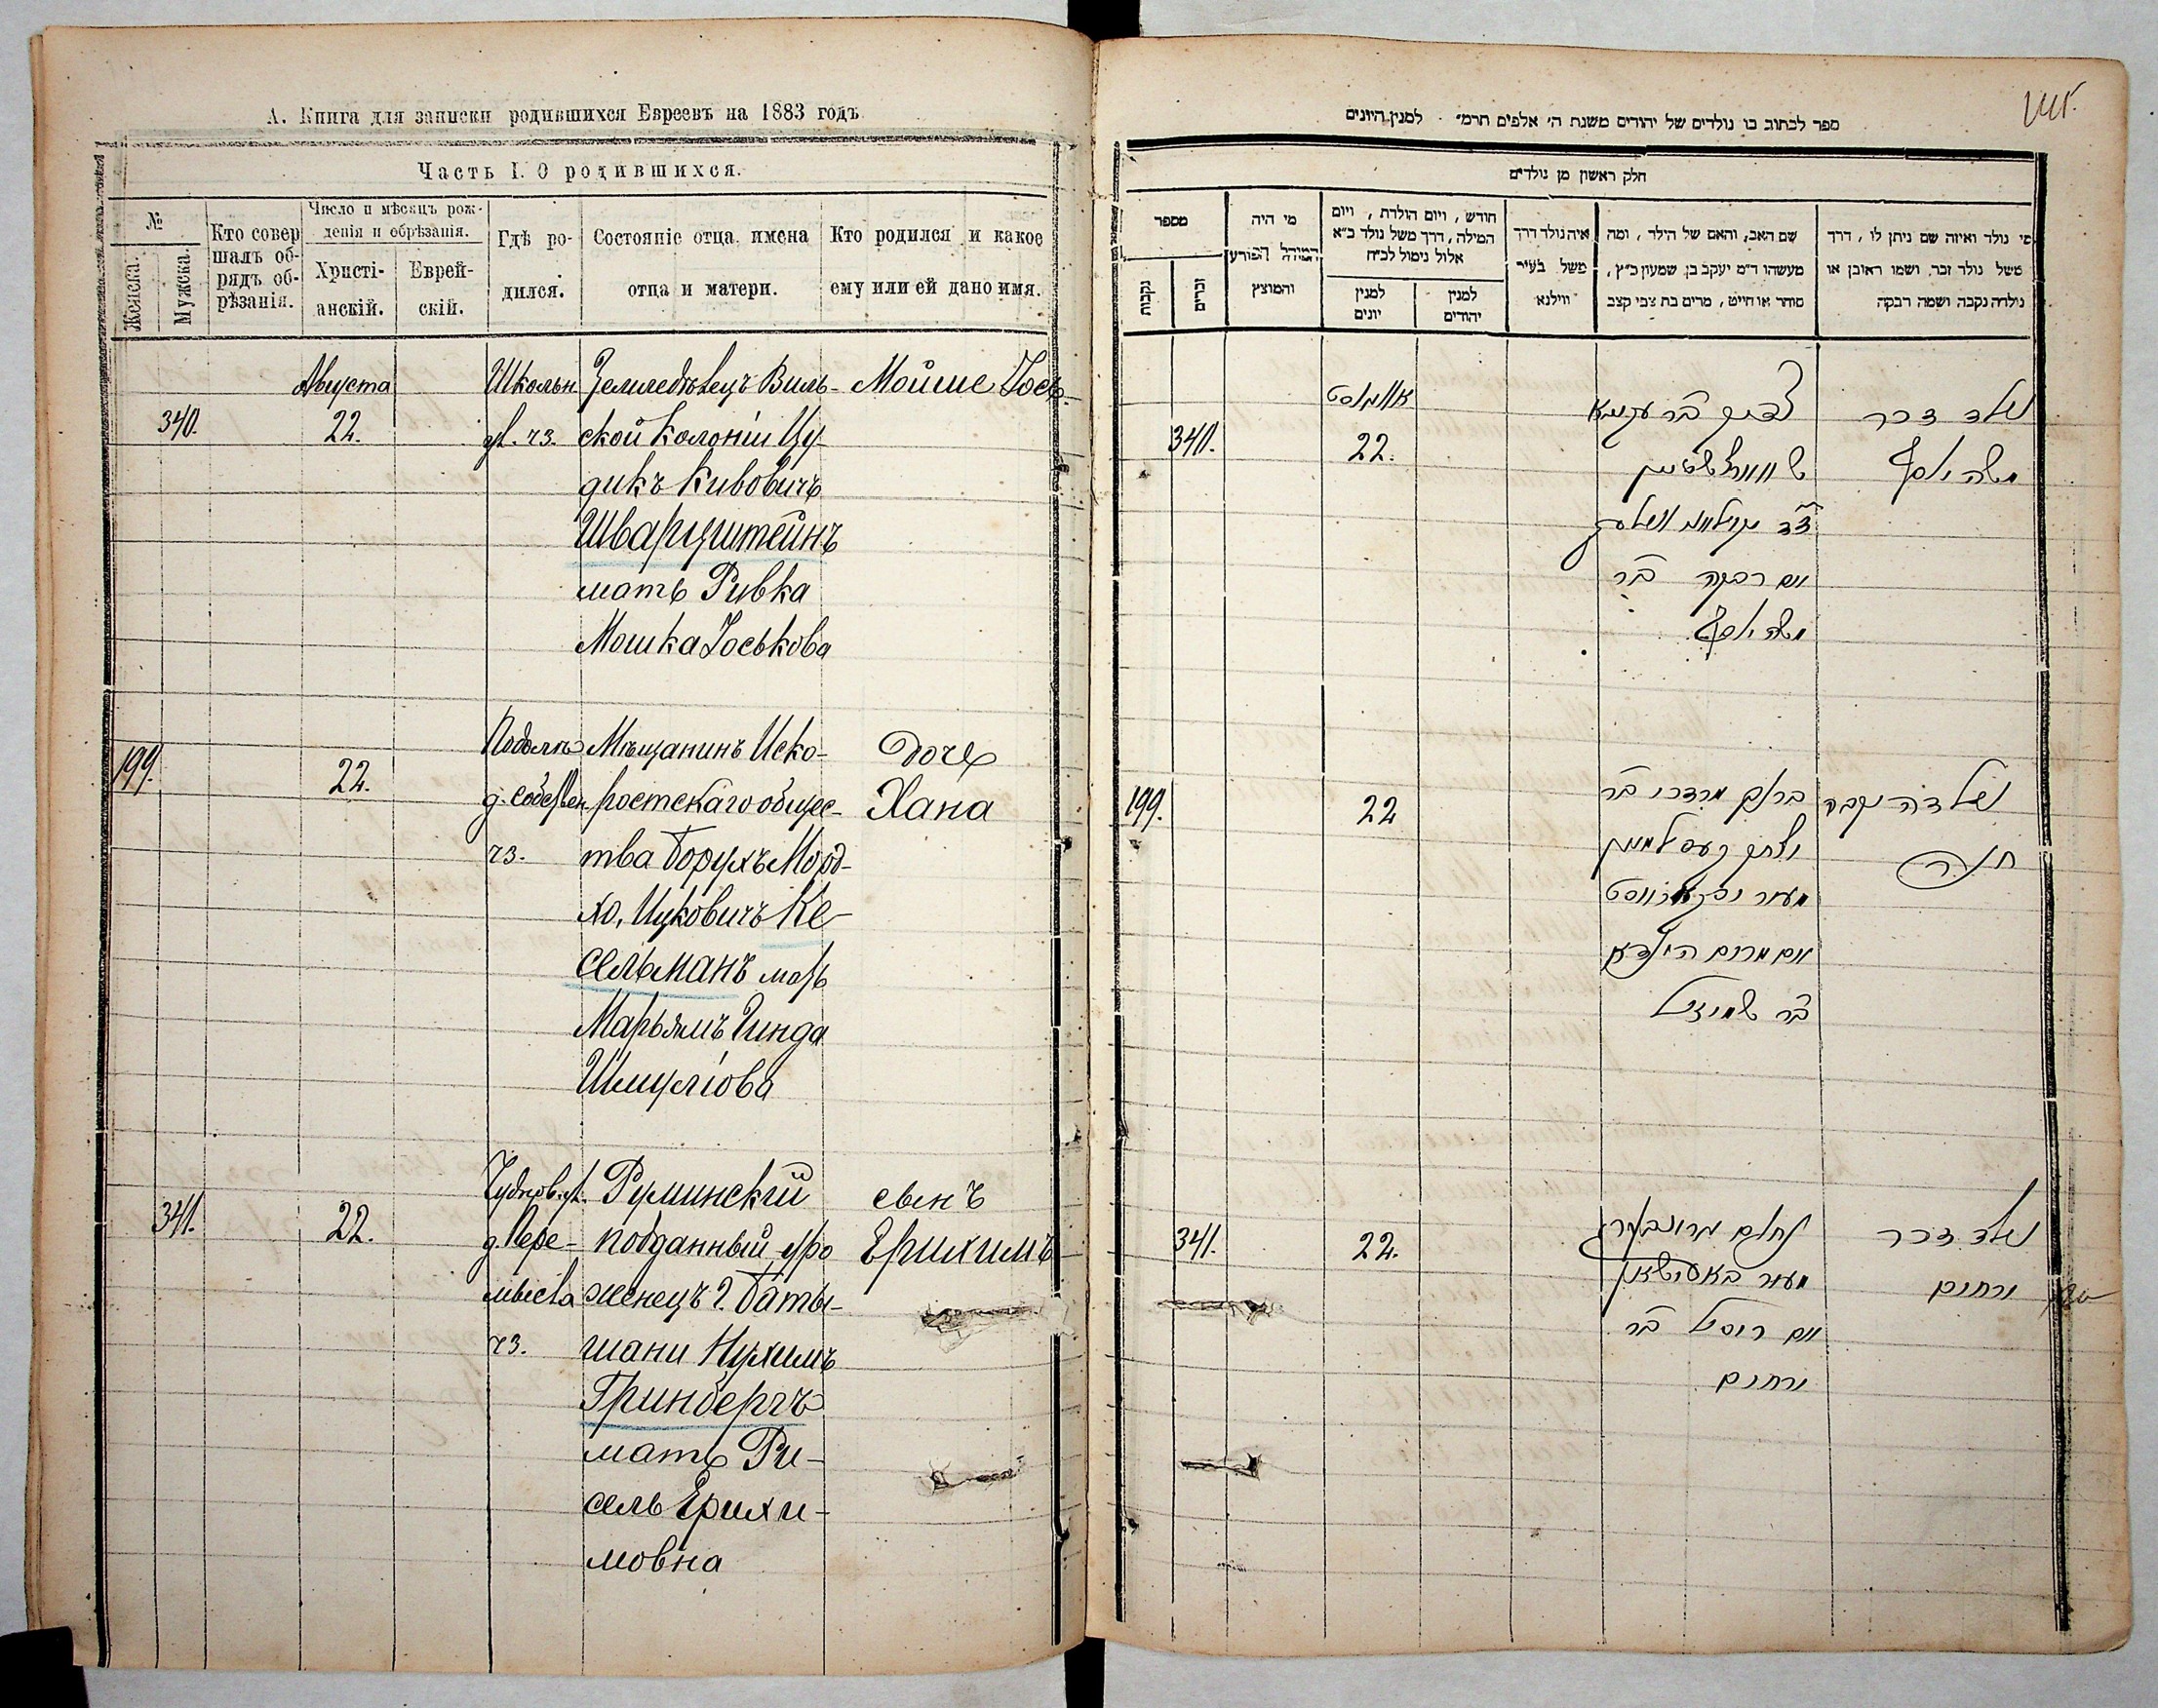 А. Книга для записки родившихся Евреевъ на 1883 годъ
Часть I. О родившихся.
№
Женска.
Мужеска.
Кто совер
шалъ об-
рядъ об-
рѣзанія.
Число и мѣсяцъ рож-
денія и обрѣзанія.
Христі-
анскій.
Еврей-
скій.
Гдѣ ро-
дился.
Состояніе отца, имена
отца и матери.
Кто родился и какое
ему или ей дано имя.
340.
Августа
22.
Школьн.
ул. чз.
Земледѣлецъ Виль-
ской Колоніи Цу-
дикъ Кивовичъ
Шварцштейнъ
мать Ривка
Мошка Іоськова
Мойше Іось
199.
22.
д. собствен.
чз.
Мѣщанинъ Иско-
ростскаго общес-
тва Борухъ Морд-
хо, Ицковичъ Ке-
сельманъ мать
Марьямъ Гинда
Шмулiова
Дочь
Хана
341.
22.
Чудновск. ул.
д. Пере-
чз.
Руминскій
подданный уро
женецъ г. Баты-
шани Нухимъ
Гринбергъ
мать Ри-
сель Ерихи-
мовна
сынъ
Ерихимъ
ספר לכתוב בו נולדים של יהודים משנת ה׳ אלפים תרמ״ למנין היונים
חלק ראשון מן נולדים
מספר
נקבות
זכרים
מי היה
המוהל הפורע
והמוצץ
חודש, ויום הולדת, ויום
המילה, דרך משל נולד כ״א
אלול נימול לכ״ח
למנין
יונים
למנין
יהודים
איה נולד דרך
משל בעיר
ווילנא
שם האב, והאם של הילד, ומה
מעשהו ד״מ יעקב בן שמעון כ״ץ,
סוחר או חייט, מרים בת צבי קצב
מי נולד ואיזה שם ניתן לו, דרך
משל נולד זכר, ושמו ראובן או
נולדה נקבה ושמה רבקה
340.
אווגוסט
22.
צדוק ב״ר עקיבא
שווארצשטיין
אם רבקה ב״ר
משה יאסף
נולד זכר
משה יאסף
199.
22
ברוך מרדכי ב״ר
יצחק קעסילמאן
אם מרים הינדא
ב״ר שמואל
נולדה נקבה
חנה
341.
22.
נחום גרינבערג
מעיר באטישאן
אם ריסיל ב״ר
ירחים
נולד זכר
ירחים